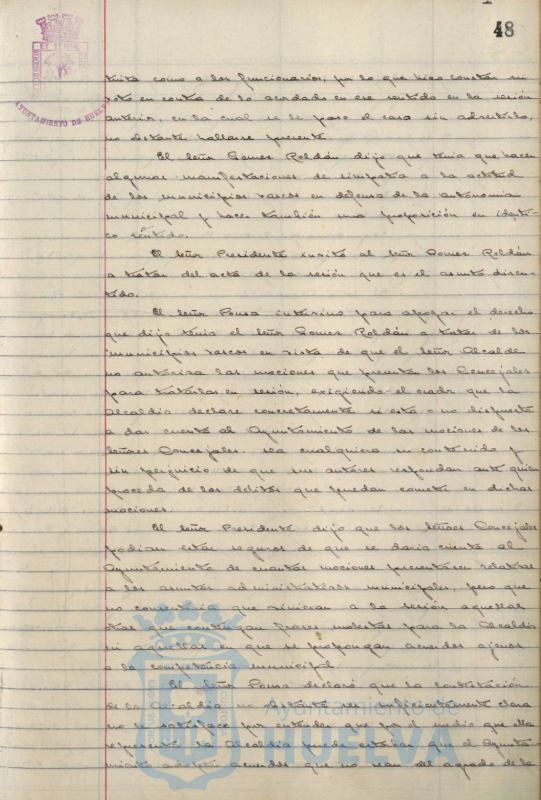 48
AYUNTAMIENTO DE HUELVA
como a los funcionarios, por lo que hizo constar su
voto en contra de lo acordado en ese sentido en la sesión
anterior, en la cual se le pasó el caso sin advertirlo,
no obstante hallarse presente.
El Señor Gomez Roldán dijo que tenia que hacer
algunas manifestaciones de simpatia a la actitud
de los municipios vascos en defensa de la autonomia
municipal y hacer también una proposición en idénti-
co sentido.
El Señor Presidente invitó al Señor Gomez Roldán
a tratar del acta de la sesión que es el asunto discu-
tido.
El Señor Ponsa intervino para apoyar el derecho
que dijo tenia el Señor Gomez Roldán a tratar de los
municipios vascos en vista de que el Señor Alcalde
no autoriza las mociones que presentan los Concejales
para tratarlas en sesión, exigiendo el orador que la
Alcaldia declare concretamente si está o no dispuesta
a dar cuenta al Ayuntamiento de las mociones de los
Señores Concejales, sea cualquiera su contenido y
sin perjuicio de que sus autores respondan ante quien
proceda de los delitos que puedan cometer en dichas
mociones.
El Señor Presidente dijo que los Señores Concejales
podian estar seguros de que se daria cuenta al
Ayuntamiento de cuantas mociones presentasen relativas
a los asuntos administrativos municipales, pero que
no consentiria que vinieran a la sesión aquellas
otras que contengan frases molestas para la Alcaldia
ni aquellas en que se propongan acuerdos ajenos
a la competencia municipal.
El Señor Ponsa declaró que la contestación
de la Alcaldia no obstante ser suficientemente clara
no le satisface por entender que por el medio que ella
representa la Alcaldia puede estorbar que el Ayunta-
miento adopte acuerdos que no sean del agrado de la
Ayuntamiento de
HUELVA